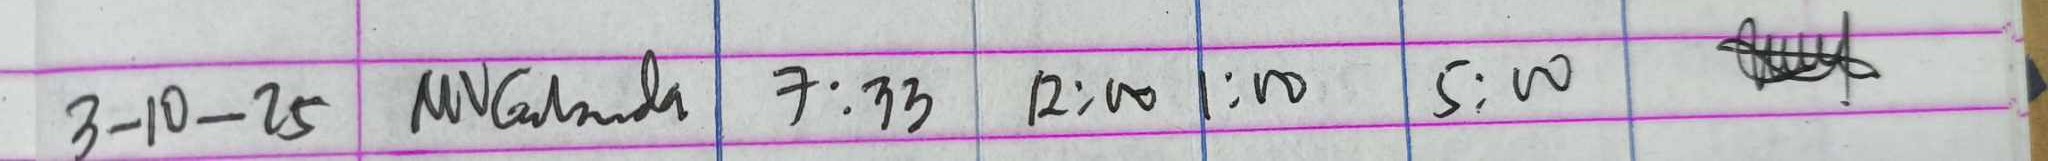 3-10-25 7:33 12:00 1:00 5:00